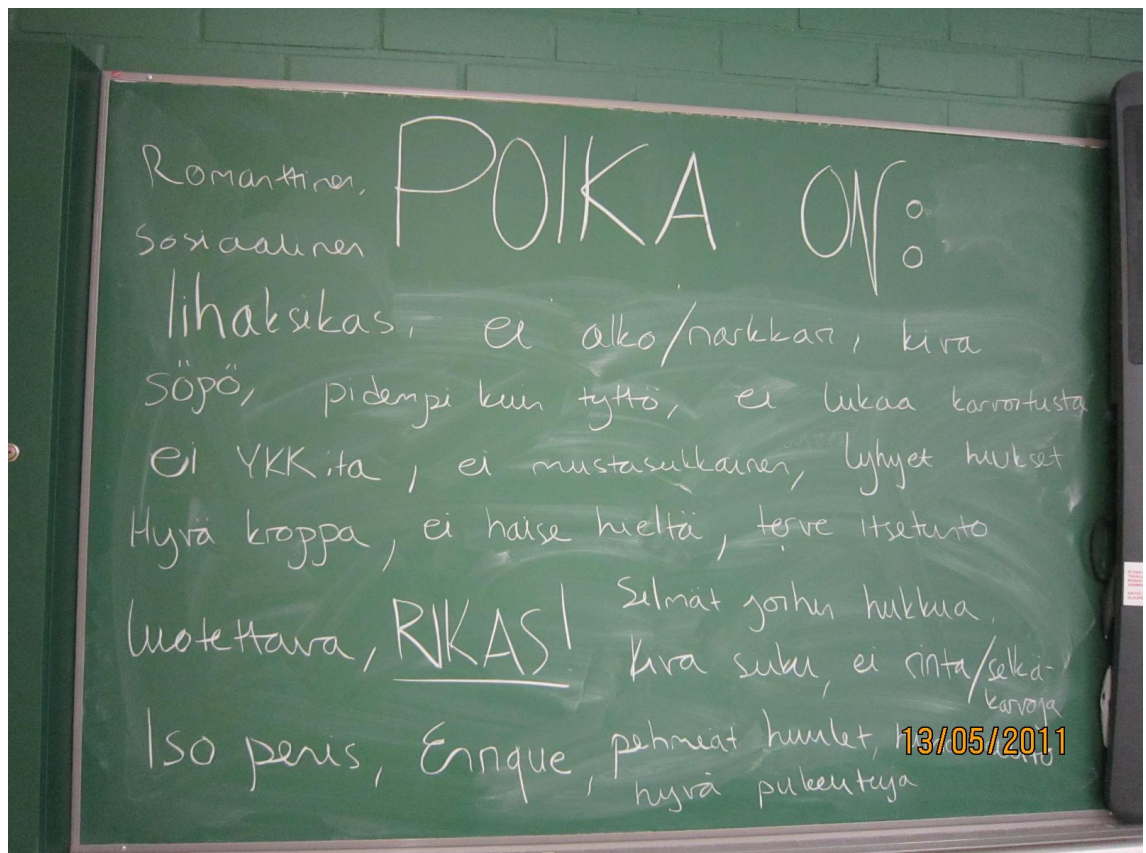 POIKA ON:
Romanttinen,
sosiaalinen
lihaksikas, ei alko/narkkari, kiva
söpö, pidempi kuin tyttö, ei liikaa karvoitusta
ei YKKitä, ei mustasukkainen, lyhyet hiukset
Hyvä kroppa, ei haise hieltä, terve itsetunto
luotettava, RIKAS!
Silmät joihin hukkua,
kiva suku, ei rinta/selkä-
karvoja
Iso penis, Enrique, pehmeät huulet,
hyvä pukeutuja
13/05/2011